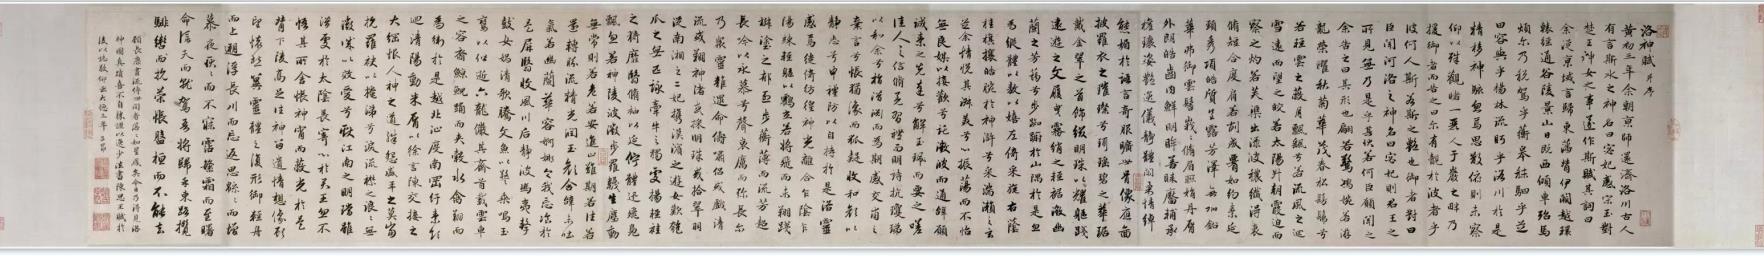 洛神賦 并序
黃初三年余朝京師還濟洛川古人
有言斯水之神名曰宓妃感宋玉對
楚王神女之事遂作斯賦其詞曰
余從京域言歸東藩背伊闕越轘
轅經通谷陵景山日既西傾車殆馬
煩爾乃稅駕乎蘅皋秣駟乎芝
田容與乎楊林流眄乎洛川於是
精移神駭忽焉思散俯則未察
仰以殊觀睹一麗人于巖之畔乃
援御者而告之曰爾有覿於彼者乎
彼何人斯若斯之豔也御者對曰
臣聞河洛之神名曰宓妃則君王之
所見無乃是乎其狀若何臣願聞之
余告之曰其形也翩若驚鴻婉若游
龍榮曜秋菊華茂春松髣髴兮
若輕雲之蔽月飄颻兮若流風之迴
雪遠而望之皎若太陽升朝霞迫而
察之灼若芙蕖出淥波穠纖得衷
脩短合度肩若削成腰如約素延
頸秀項皓質呈露芳澤無加鉛
華弗御雲髻峩峩脩眉聯娟丹脣
外朗皓齒內鮮明眸善睞靨輔承
權瓌姿豔逸儀靜體閑柔情綽
態媚於語言奇服曠世骨像應圖
披羅衣之璀璨兮珥瑤碧之華琚
戴金翠之首飾綴明珠以耀軀踐
遠遊之文履曳霧綃之輕裾微幽
蘭之芳藹兮步踟躕於山隅於是忽
焉縱體以敖以嬉左倚采旄右蔭
桂旗攘皓腕於神滸兮采湍瀨之玄
芝余情悅其淑美兮心振蕩而不怡
無良媒以接歡兮託微波而通辭願
誠素之先達兮解玉珮而要之嗟
佳人之信脩羌習禮而明詩抗瓊珶
以和余兮指潛淵而為期感交甫之
棄言兮悵猶豫而狐疑收和顏以
靜志兮申禮防以自持於是洛靈
感焉徙倚彷徨神光離合乍陰乍
陽竦輕軀以鶴立若將飛而未翔踐
椒塗之郁烈步蘅薄而流芳超
長吟以永慕兮聲哀厲而彌長爾
乃眾靈雜遝命儔嘯侶或戲清
流或翔神渚或採明珠或拾翠羽
從南湘之二妃攜漢濱之遊女歎匏
瓜之無匹詠牽牛之獨處揚輕袿
之綺靡翳脩袖以延佇體迅飛鳧
飄忽若神陵波微步羅襪生塵動
無常則若危若安進止難期若往若
還轉眄流精光潤玉顏含辭未吐
氣若幽蘭華容婀娜令我忘飡於
是屏翳收風川后靜波馮夷擊
鼓女媧清歌騰文魚以警乘鳴玉
鸞以偕逝六龍儼其齊首載雲車
之容裔鯨鯢踊而夾轂水禽翔而
為衛於是越北沚度南岡紆素領
迴清陽動朱脣以徐言陳交接之
大綱恨人神之道殊怨盛年之莫當
抗羅袂以掩涕兮淚流襟之浪浪無
微情以效愛兮獻江南之明璫雖
潛處於太陰長寄心於君王忽不
悟其所舍悵神宵而蔽光於是
背下陵高足往神留遺情想像顧
望懷愁冀靈體之復形御輕舟
而上遡浮長川而忘返思緜緜而增
慕夜耿耿而不寐霑繁霜而至曙
命僕夫而就駕吾將歸乎東路攬
騑轡而抗策悵盤桓而不能去